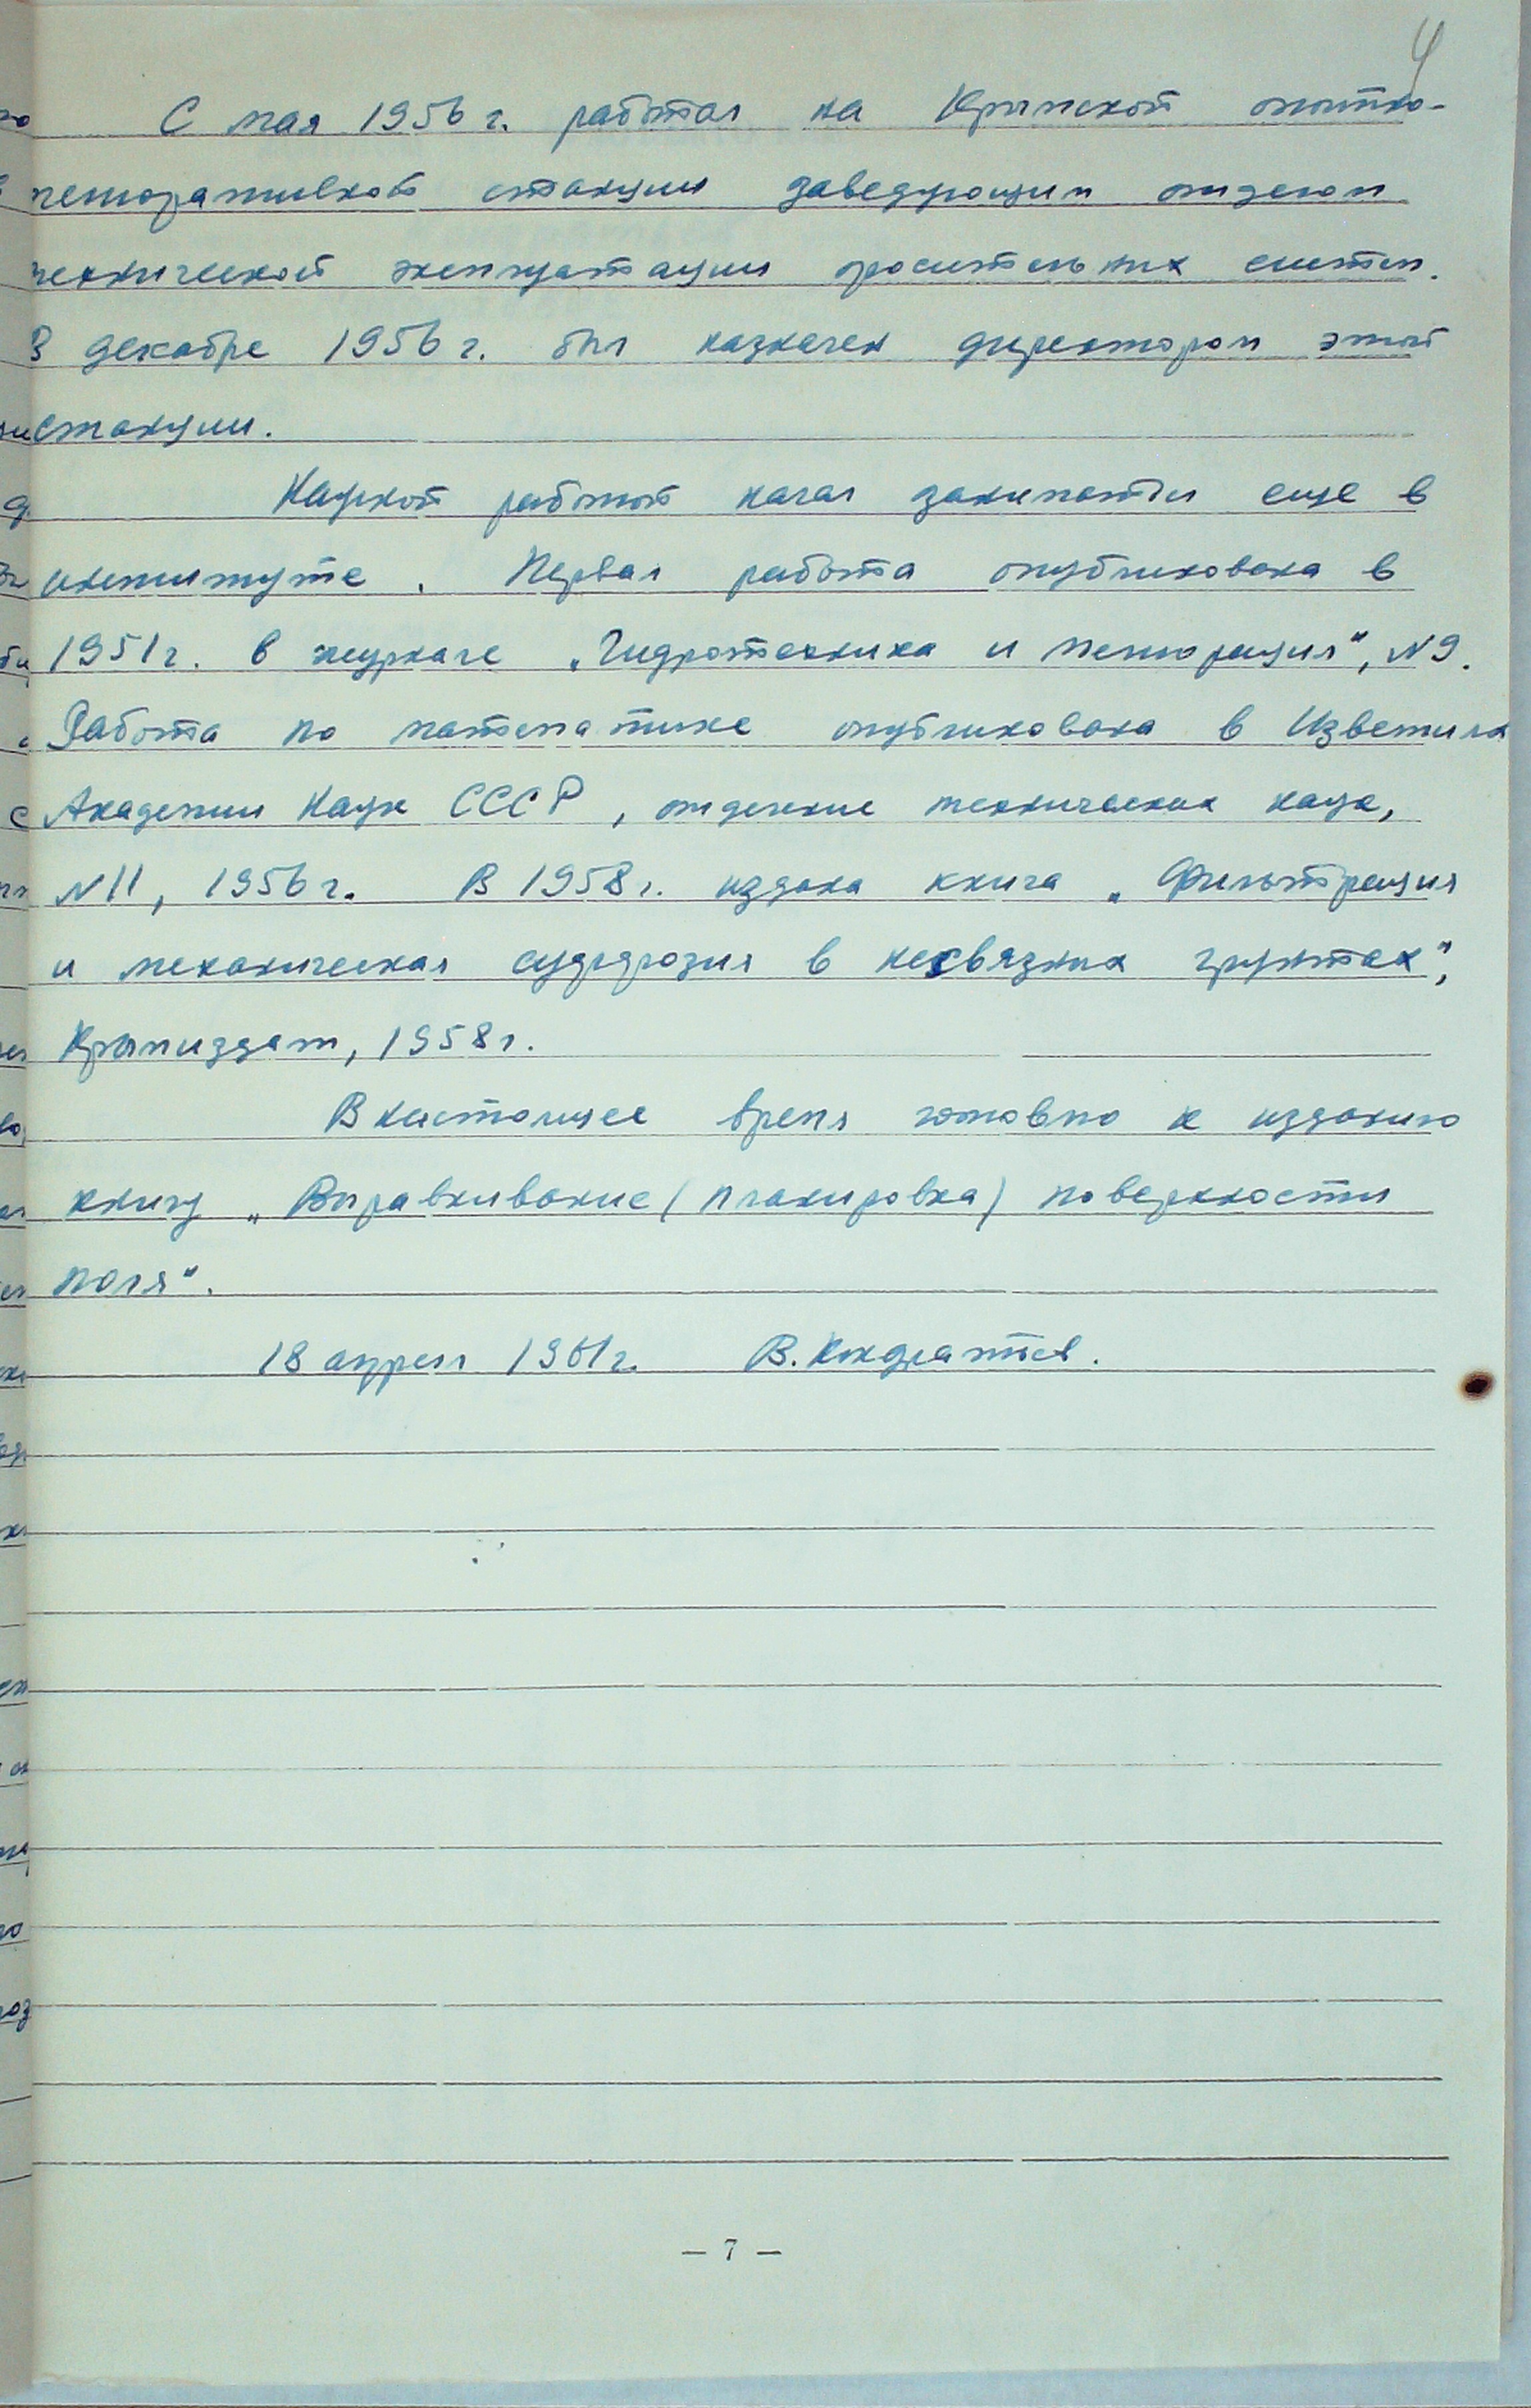 4
С мая 1956 г. работал на Крымской опытно-
мелоративной станции заведующим отделом
технической эксплуатации оросительных систем.
В декабре 1956 г. был назначен директором этой
станции.
Научной работой начал заниматься еще в
институте. Первая работа опубликована в
1951 г. в журнале „Гидротехника и мелиорация“, N 9.
Работа по математике опубликована в Известиях
Академии Наук СССР, отделение технических наук,
N 11, 1956 г. В 1958 г. издана книга „Фильтрация
и механическая суффозия в несвязных грунтах“,
Крымиздат, 1958 г.
В настоящее время готовлю к изданию
книгу „Выравнивание (планировка) поверхности
поля“.
18 апреля 1961 г. В. Кондратьев.
— 7 —